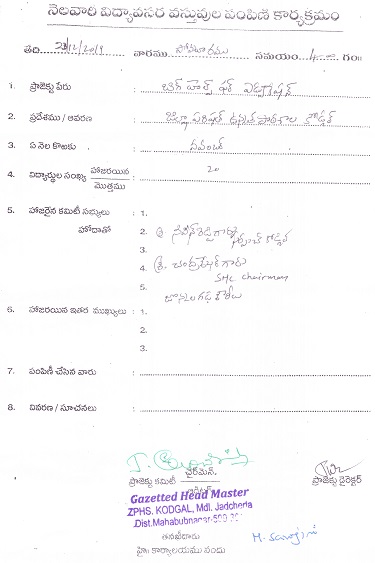 నెలవారి విద్యావసర వస్తువుల పంపిణి కార్యక్రమం
తేది 23/12/2019 వారము సోమవారము సమయం 4 గం॥
1. ప్రాజెక్టు పేరు : బిగ్ హెల్ప్ ఫర్ ఎడ్యుకేషన్
2. ప్రదేశము / ఆవరణ : జిల్లా పరిషత్ ఉన్నత పాఠశాల కోడ్గల్
3. ఏ నెల కొఱకు : నవంబర్
4. విద్యార్థుల సంఖ్య హాజరయిన / మొత్తము : 20
5. హాజరైన కమిటీ సభ్యులు : 1.
హోదాతో 2. శ్రీ. నవీన్ రెడ్డి గారు
3.
4. శ్రీ. చంద్రశేఖర్ గారు
SMC Chairman
5.
6. హాజరయిన ఇతర ముఖ్యులు : 1.
2.
3.
7. పంపిణీ చేసిన వారు :
8. వివరణ / సూచనలు :
ప్రాజెక్టు కమిటీ చైర్మన్. ప్రాజెక్టు డైరెక్టర్
Gazetted Head Master
ZPHS. KODGAL, Mdl. Jadcherla
Dist. Mahabubnagar-509
తనఖీదారు M. Sarojini
హై॥ కార్యాలయము నందు